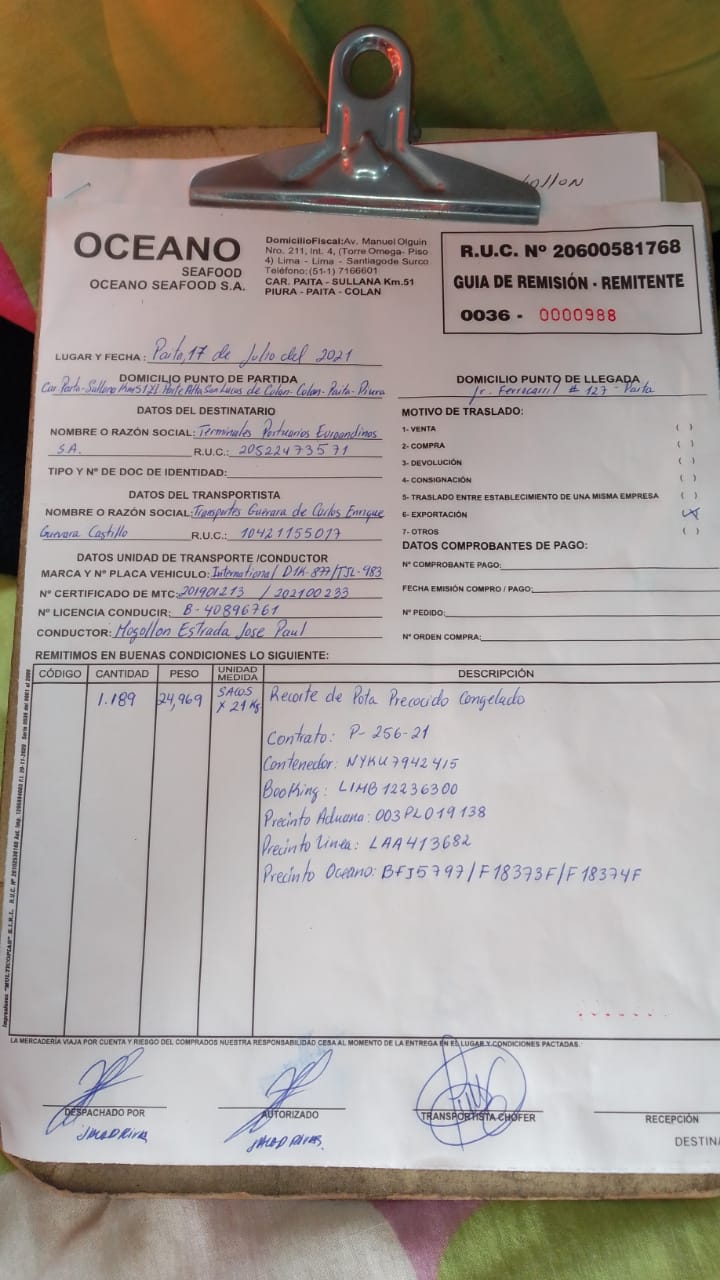 ollon
OCEANO
SEAFOOD
OCEANO SEAFOOD S.A.
DomicilioFiscal:Av. Manuel Olguin
Nro. 211, Int. 4, (Torre Omega- Piso
4) Lima - Lima - Santiagode Surco
Teléfono:(51-1) 7166601
CAR. PAITA - SULLANA Km.51
PIURA - PAITA - COLAN
R.U.C. Nº 20600581768
GUIA DE REMISIÓN - REMITENTE
0036 - 0000988
LUGAR Y FECHA : Paita, 17 de Julio del 2021
DOMICILIO PUNTO DE PARTIDA
Car. Paita-Sullana Km 51 Parte Alta San Lucas de Colan-Colan-Paita-Piura
DOMICILIO PUNTO DE LLEGADA
Jr. Ferrocarril # 127 - Paita
DATOS DEL DESTINATARIO
NOMBRE O RAZÓN SOCIAL: Terminales Portuarios Euroandinos
S.A. R.U.C.: 20522473571
TIPO Y Nº DE DOC DE IDENTIDAD:
MOTIVO DE TRASLADO:
1- VENTA ( )
2- COMPRA ( )
3- DEVOLUCIÓN ( )
4- CONSIGNACIÓN ( )
5- TRASLADO ENTRE ESTABLECIMIENTO DE UNA MISMA EMPRESA ( )
6- EXPORTACIÓN (X)
7- OTROS ( )
DATOS DEL TRANSPORTISTA
NOMBRE O RAZÓN SOCIAL: Transportes Guevara de Carlos Enrique
Guevara Castillo R.U.C.: 10421155017
DATOS UNIDAD DE TRANSPORTE /CONDUCTOR
MARCA Y Nº PLACA VEHICULO: International D1K-877/TJL-983
Nº CERTIFICADO DE MTC: 201901213 / 202100233
Nº LICENCIA CONDUCIR: B-40896761
CONDUCTOR: Mogollon Estrada Jose Paul
DATOS COMPROBANTES DE PAGO:
Nº COMPROBANTE PAGO:
FECHA EMISIÓN COMPRO / PAGO:
Nº PEDIDO:
Nº ORDEN COMPRA:
REMITIMOS EN BUENAS CONDICIONES LO SIGUIENTE:
CÓDIGO CANTIDAD PESO UNIDAD MEDIDA DESCRIPCIÓN
1.189 24,969 SACOS X 21 Kg Recorte de Pota Precocido Congelado
Contrato: P-256-21
Contenedor: NYKU7942415
Booking: LIMB12236300
Precinto Aduana: 003PL019138
Precinto Linea: LAA413682
Precinto Oceano: BFJ5797/F18373F/F18374F
LA MERCADERÍA VIAJA POR CUENTA Y RIESGO DEL COMPRADOS NUESTRA RESPONSABILIDAD CESA AL MOMENTO DE LA ENTREGA EN EL LUGAR Y CONDICIONES PACTADAS.
DESPACHADO POR
AUTORIZADO
TRANSPORTISTA-CHÓFER
RECEPCIÓN
DESTINA